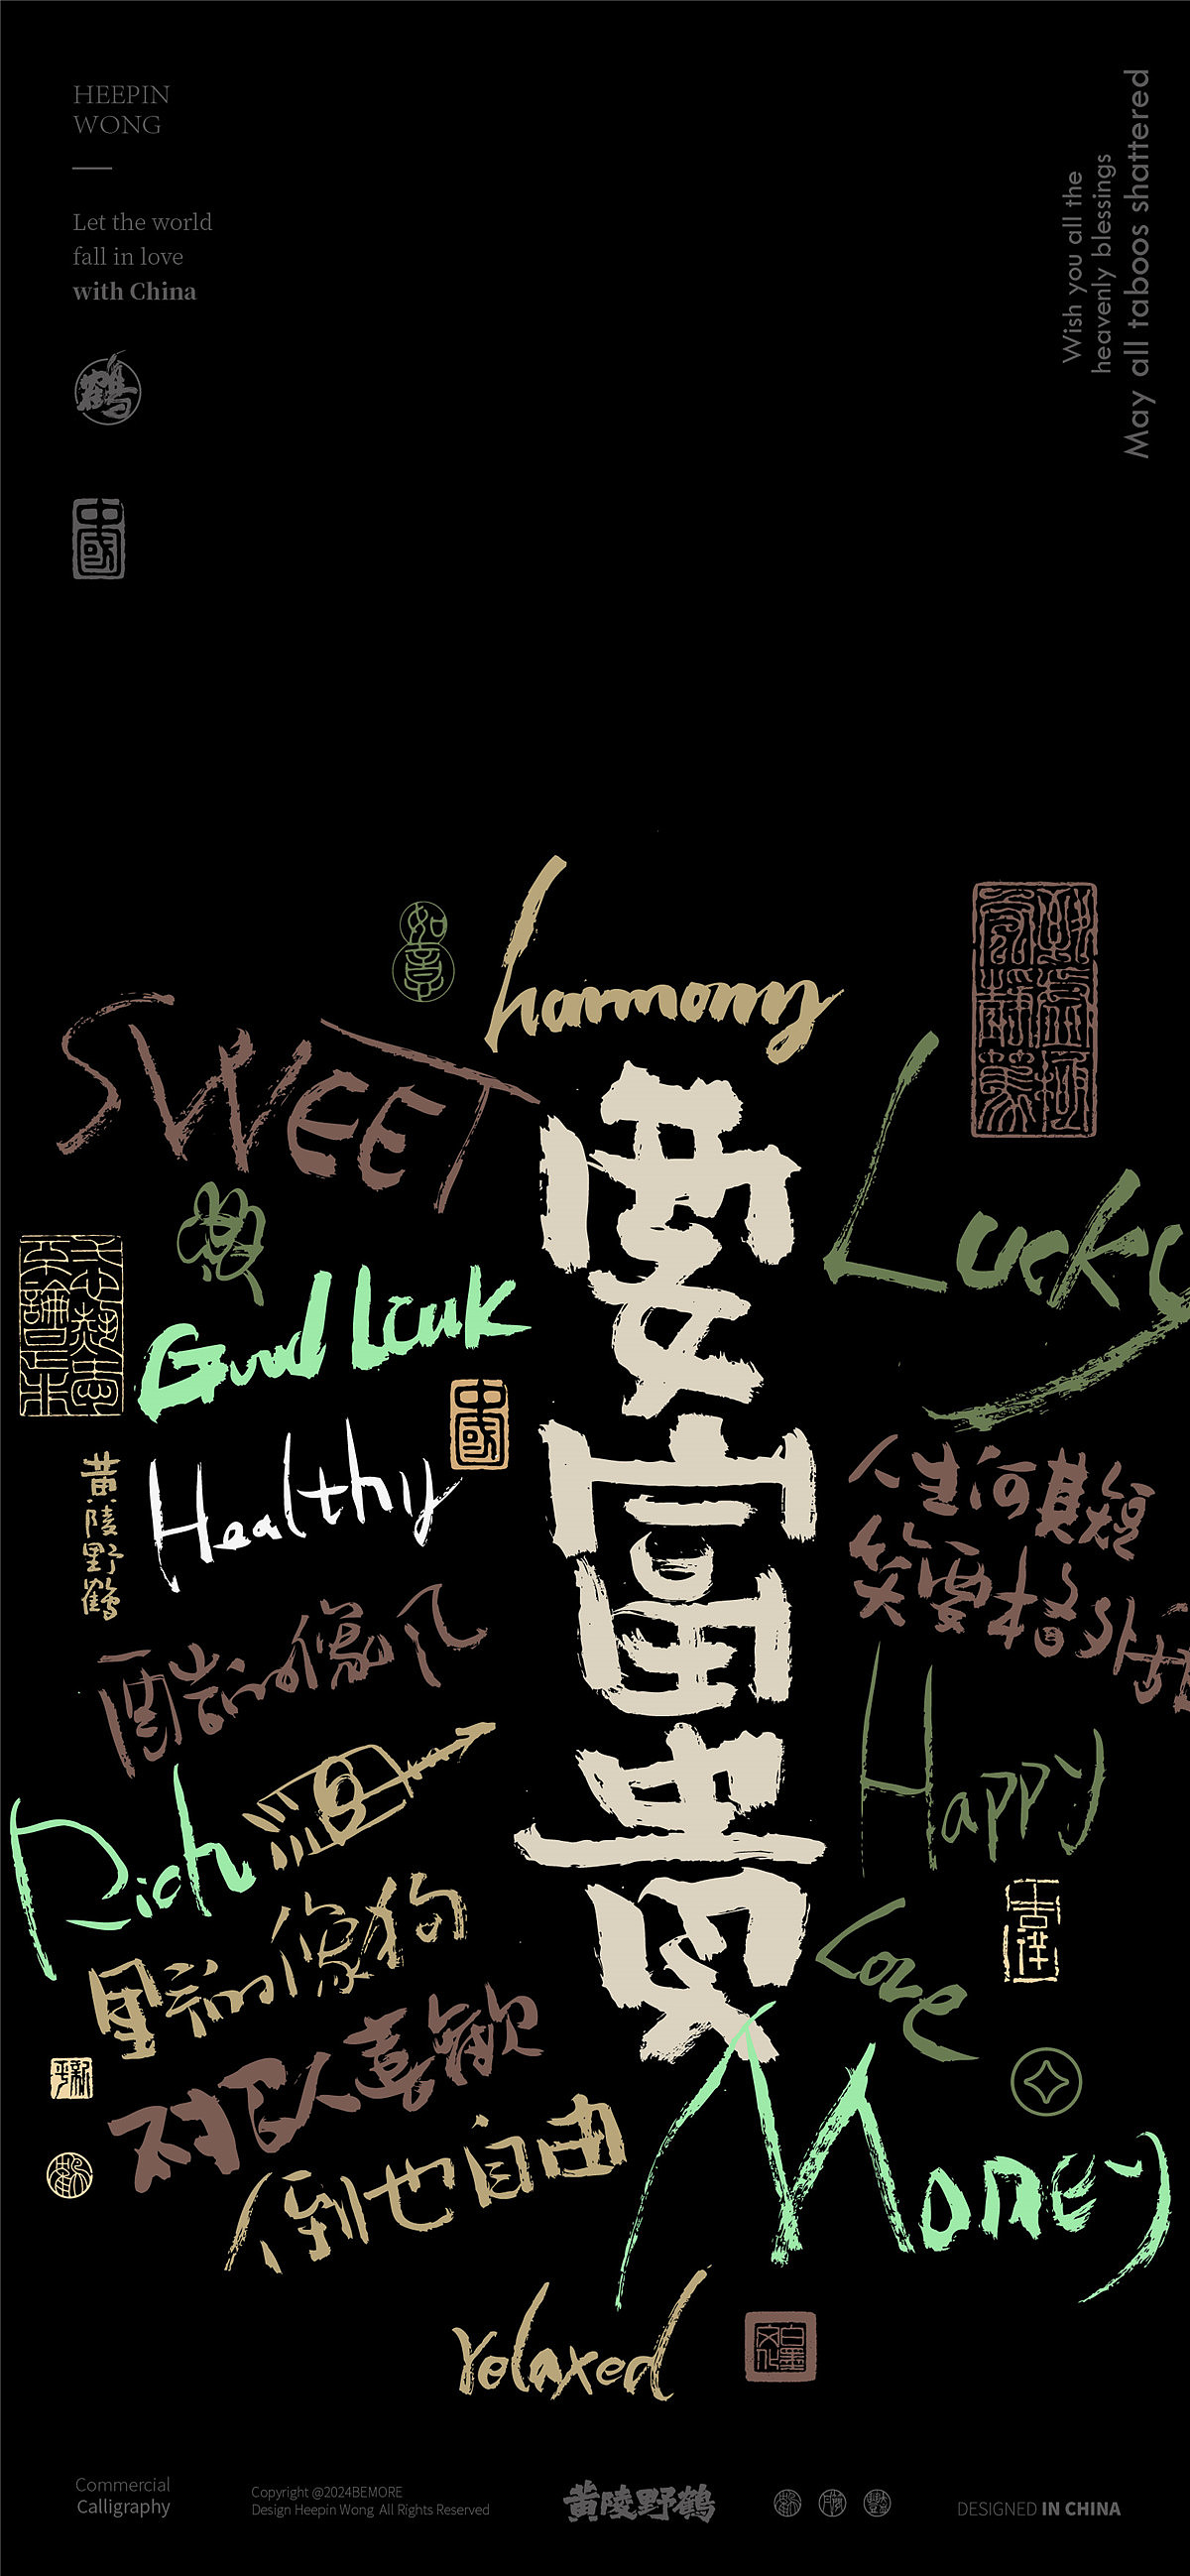 HEEPIN
WONG
Let the world
fall in love
with China
鶴
中國
Wish you all the
heavenly blessings
May all taboos shattered
harmony
如意
SWEET
Lucky
Good Lcuk
中國
Healthy
黄陵野鶴
要富貴
人生何其短
笑要格外甜
酷的像风
Rich
Happy
野的像狗
Love
吉祥
不讨人喜歡
倒也自由
Money
relaxed
白墨文化
Commercial
Calligraphy
Copyright @2024BEMORE
Design Heepin Wong All Rights Reserved
黄陵野鶴
DESIGNED IN CHINA